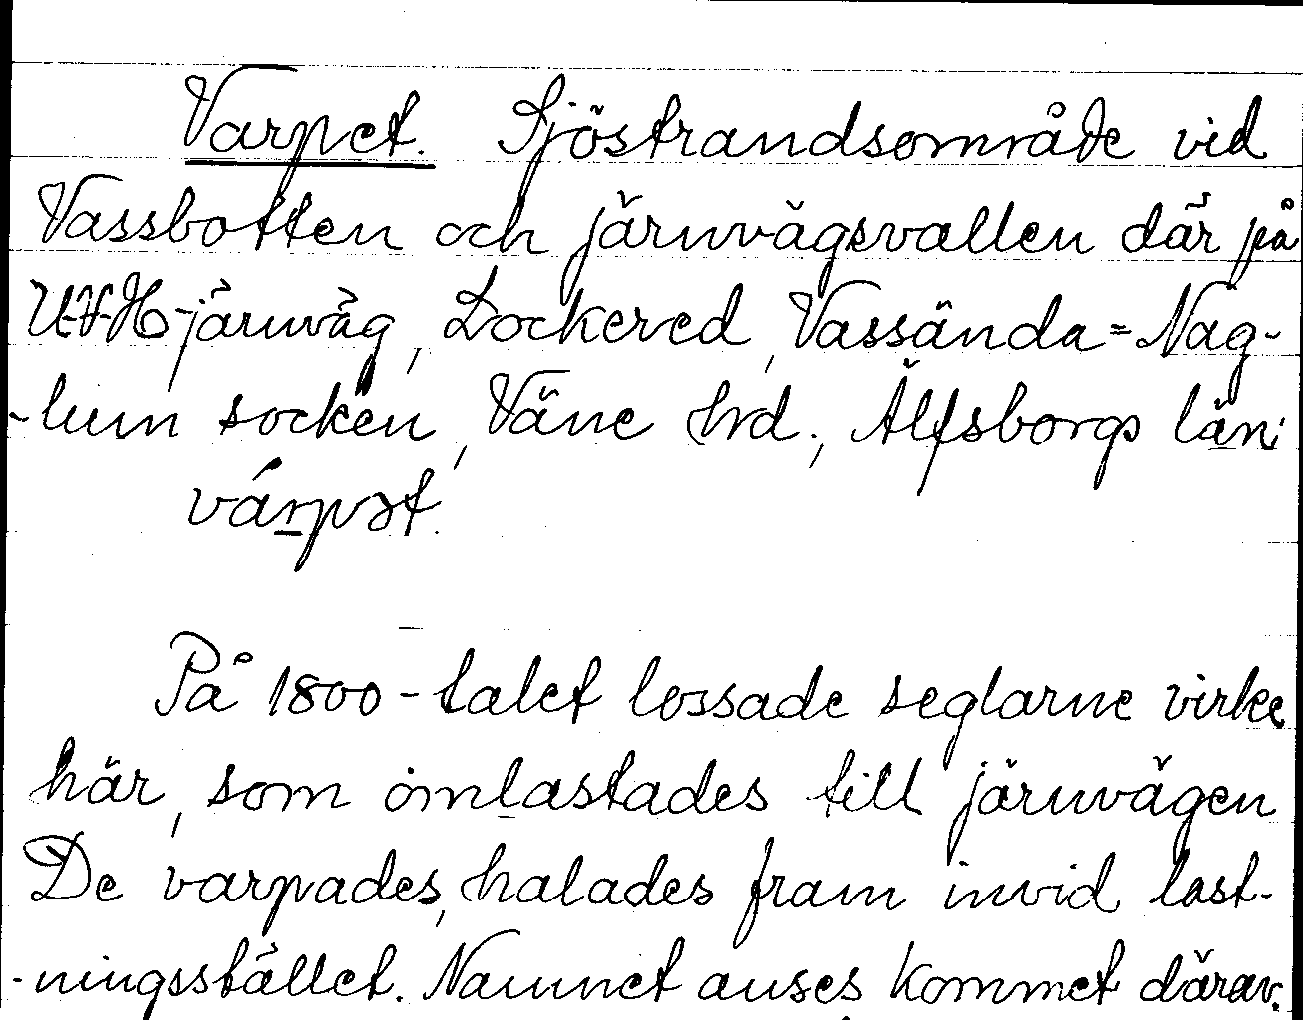 Varpet. Sjöstrandsområde vid
Vassbotten och järnvägsvallen där på
U-V-H-järnväg, Lockered, Vassända=Nag-
-lum socken, Väne hrd., Älfsborgs län:
várpət.
På 1800-talet lossade seglarne virke
här, som omlastades till järnvägen
De varpades, halades fram invid last-
-ningsstället. Namnet anses kommet därav.